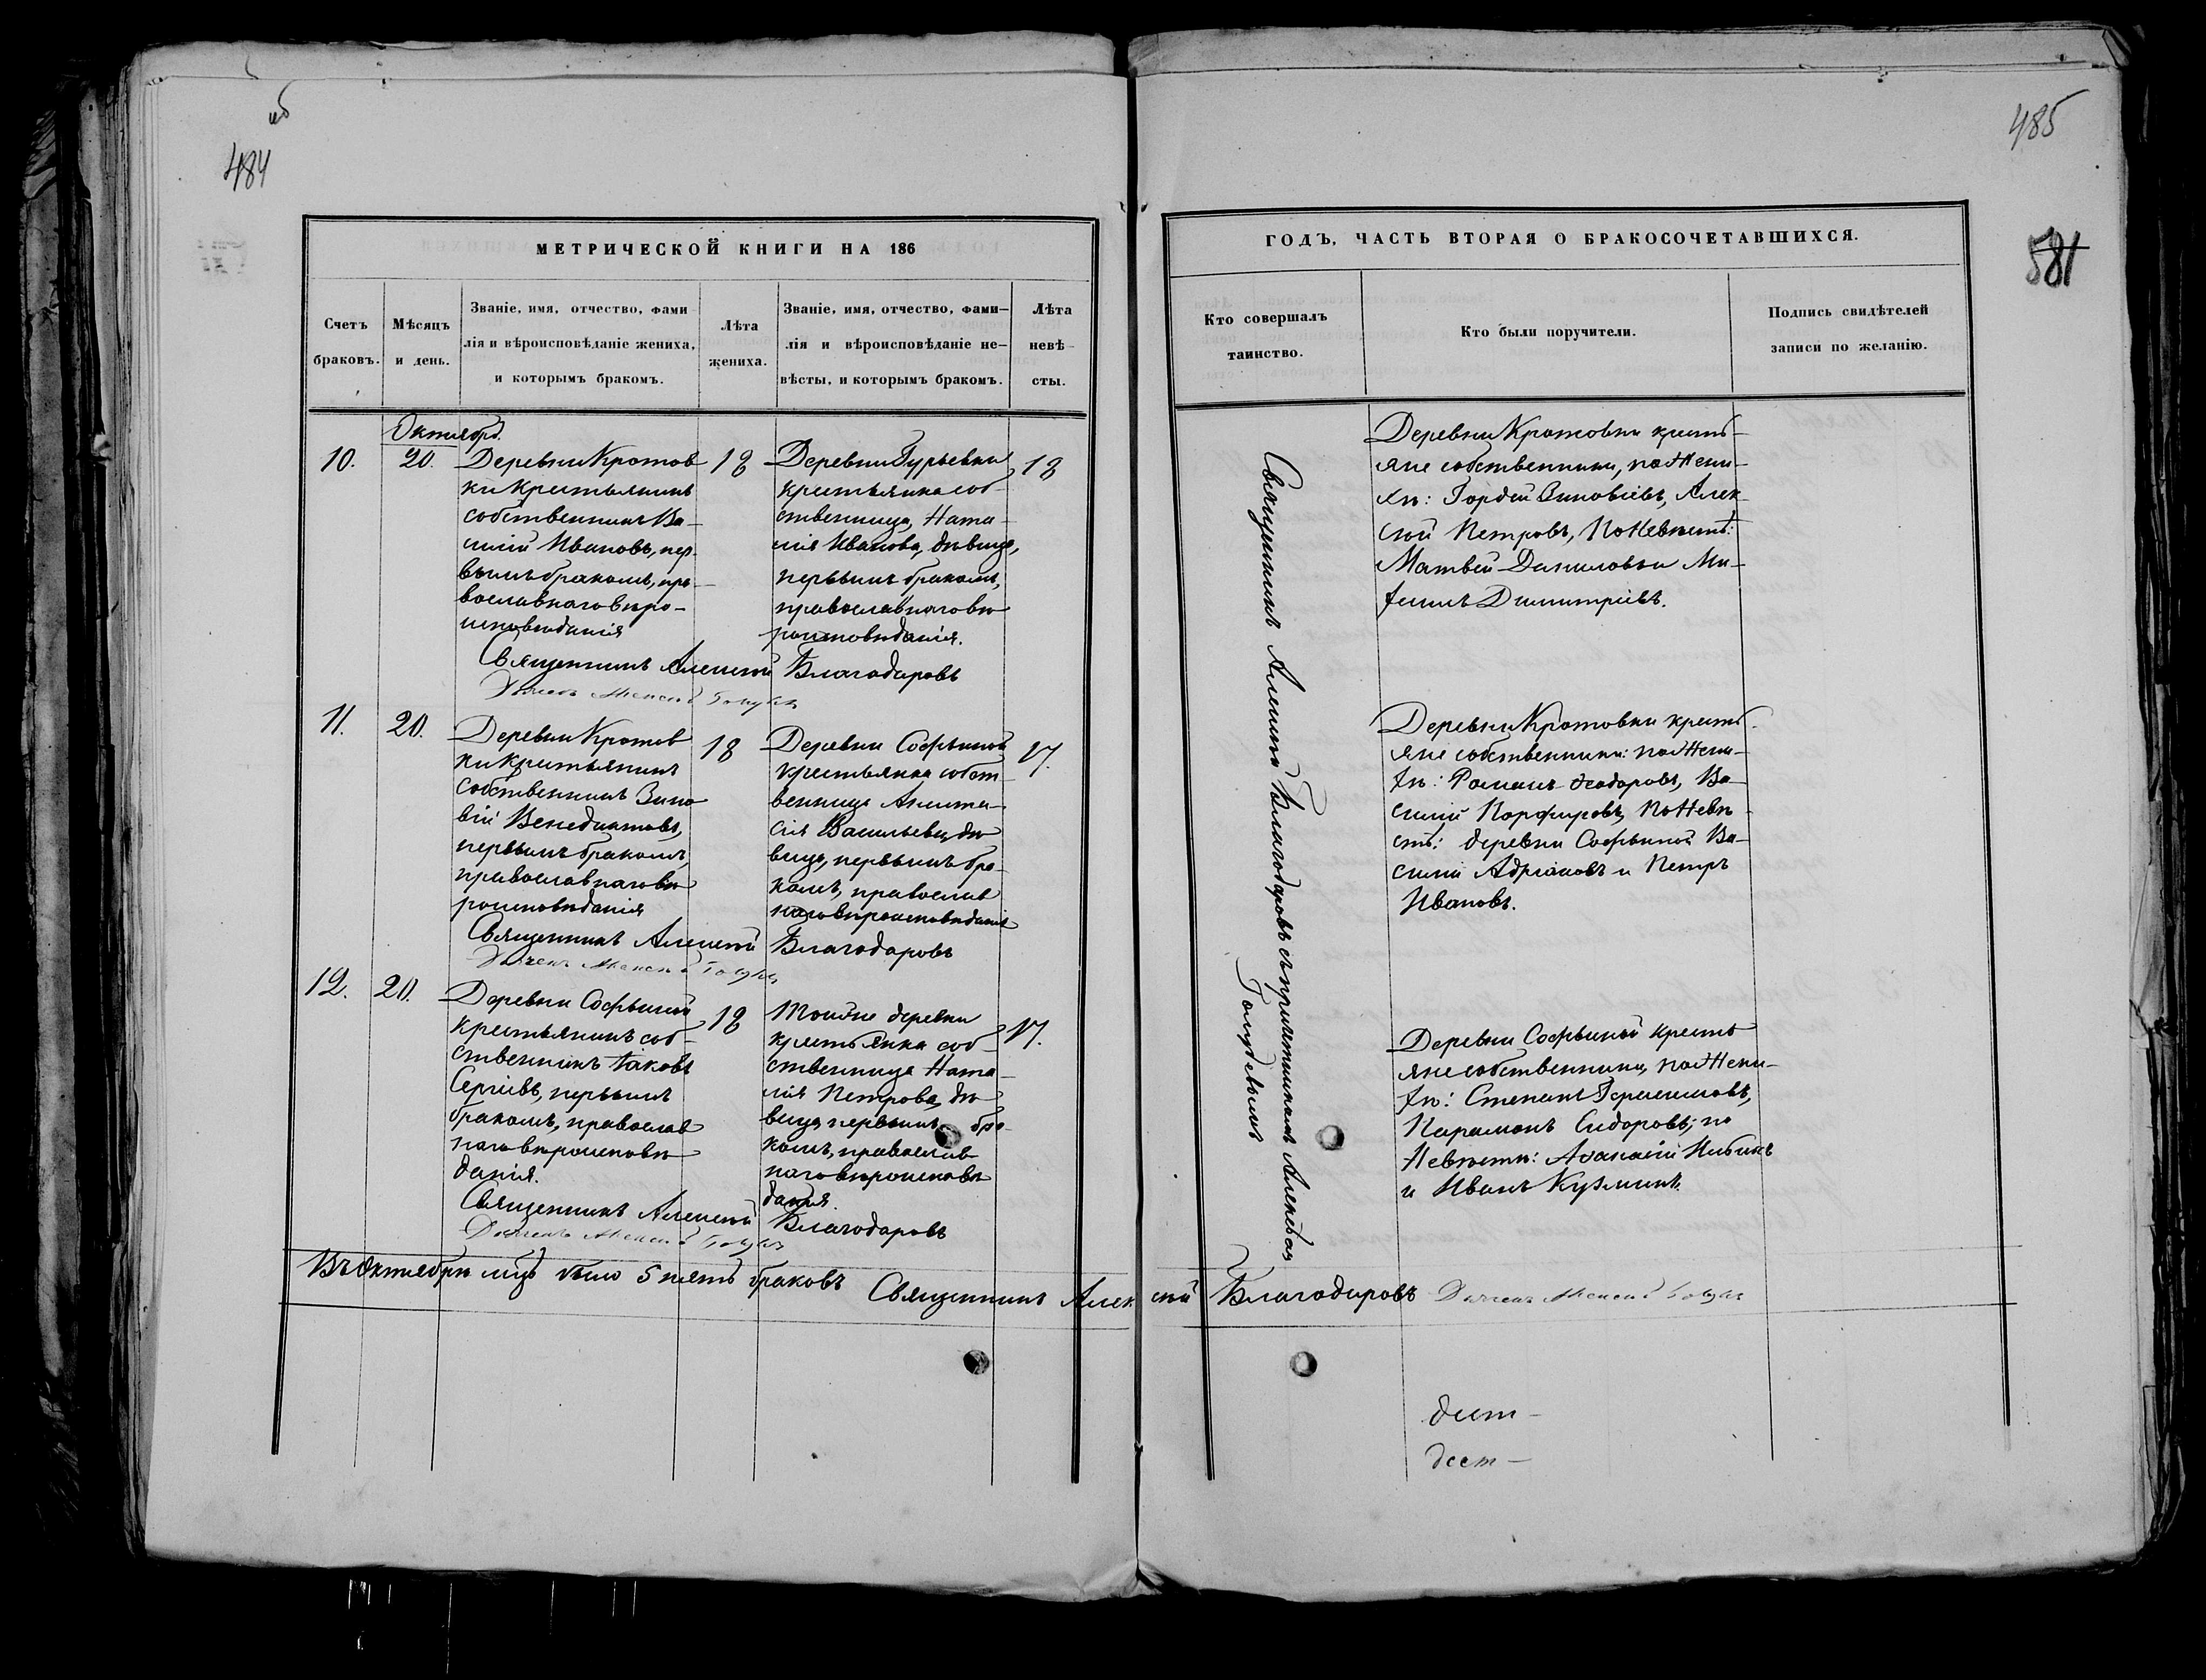 об
484
МЕТРИЧЕСКОЙ КНИГИ НА 186
Счетъ браковъ.
Мѣсяцъ и день.
Званіе, имя, отчество, фами
лія и вѣроисповѣданіе жениха,
и которымъ бракомъ.
Лѣта жениха.
Званіе, имя, отчество, фами—
лія и вѣроисповѣданіе не—
вѣсты, и которымъ бракомъ.
Лѣта невѣ сты.
Октября.
10.
20.
Деревни Кротов
ки Крестьянинъ
собственникъ Ва—
силій Ивановъ, пер
вымъ бракомъ, пра—
вославнаго вѣро—
исповѣданія
18
Деревни Гурьевки
крестьянка соб—
ственница, Ната—
лія Иванова, дѣвица,
первымъ бракомъ,
православнаго вѣ
роисповѣданія.
18
Священникъ Алексѣй Благодаровъ
Дьячекъ Алексѣй
11.
20.
Деревни Кротов
ки Крестьянинъ
Собственникъ Зино
вій Венедиктовъ,
первымъ бракомъ,
православнаго вѣ
роисповѣданія
18
Деревни Софьиной
крестьянка собст—
венница Анаста—
сія Васильева, дѣ
вица, первымъ бра—
комъ, православ
наго вѣроисповѣданія
17.
Священникъ Алексѣй Благодаровъ
Дьячекъ Алексѣй
12.
20.
Деревни Софьиной
крестьянинъ соб—
ственникъ Іаковъ
Сергіевъ, первымъ
бракомъ, православ
наго вѣроисповѣ
данія.
18
Тойже деревни
крестьянка соб—
ственница Ната—
лія Петрова, дѣ
вица первымъ бра—
комъ, православ
наго вѣроисповѣ
данія.
17.
Священникъ Алексѣй Благодаровъ
Дьячекъ Алексѣй
Въ Октябрѣ мцѣ было 5 пять браковъ Священникъ Алексѣй Благодаровъ Дьячекъ Алексѣй
485
581
ГОДЪ, ЧАСТЬ ВТОРАЯ О БРАКОСОЧЕТАВШИХСЯ.
Кто совершалъ таинство.
Кто были поручители.
Подпись свидѣтелей
записи по желанію.
Священникъ Алексѣй Благодаровъ съ причетникомъ Алексѣемъ
Голубевымъ
Деревни Кротовки кресть—
яне собственники, по Жени—
хѣ: Гордей Зиновіевъ, Алек
сѣй Петровъ, По Невѣстѣ:
Матвей Даниловъ и Ми—
хаилъ Димитріевъ.
Деревни Кротовки кресть—
яне собственники: по Жени—
хѣ: Романъ Ѳеодоровъ, Ва—
силій Порфировъ, По Невѣ
стѣ: деревни Софьиной Ва—
силій Адріановъ и Петръ
Ивановъ.
Деревни Софьиной кресть
яне собственники, по Жени—
хѣ: Степанъ Герасимовъ,
Парамонъ Сидоровъ; по
Невѣстѣ: Аѳанасій
и Иванъ Кузминъ.